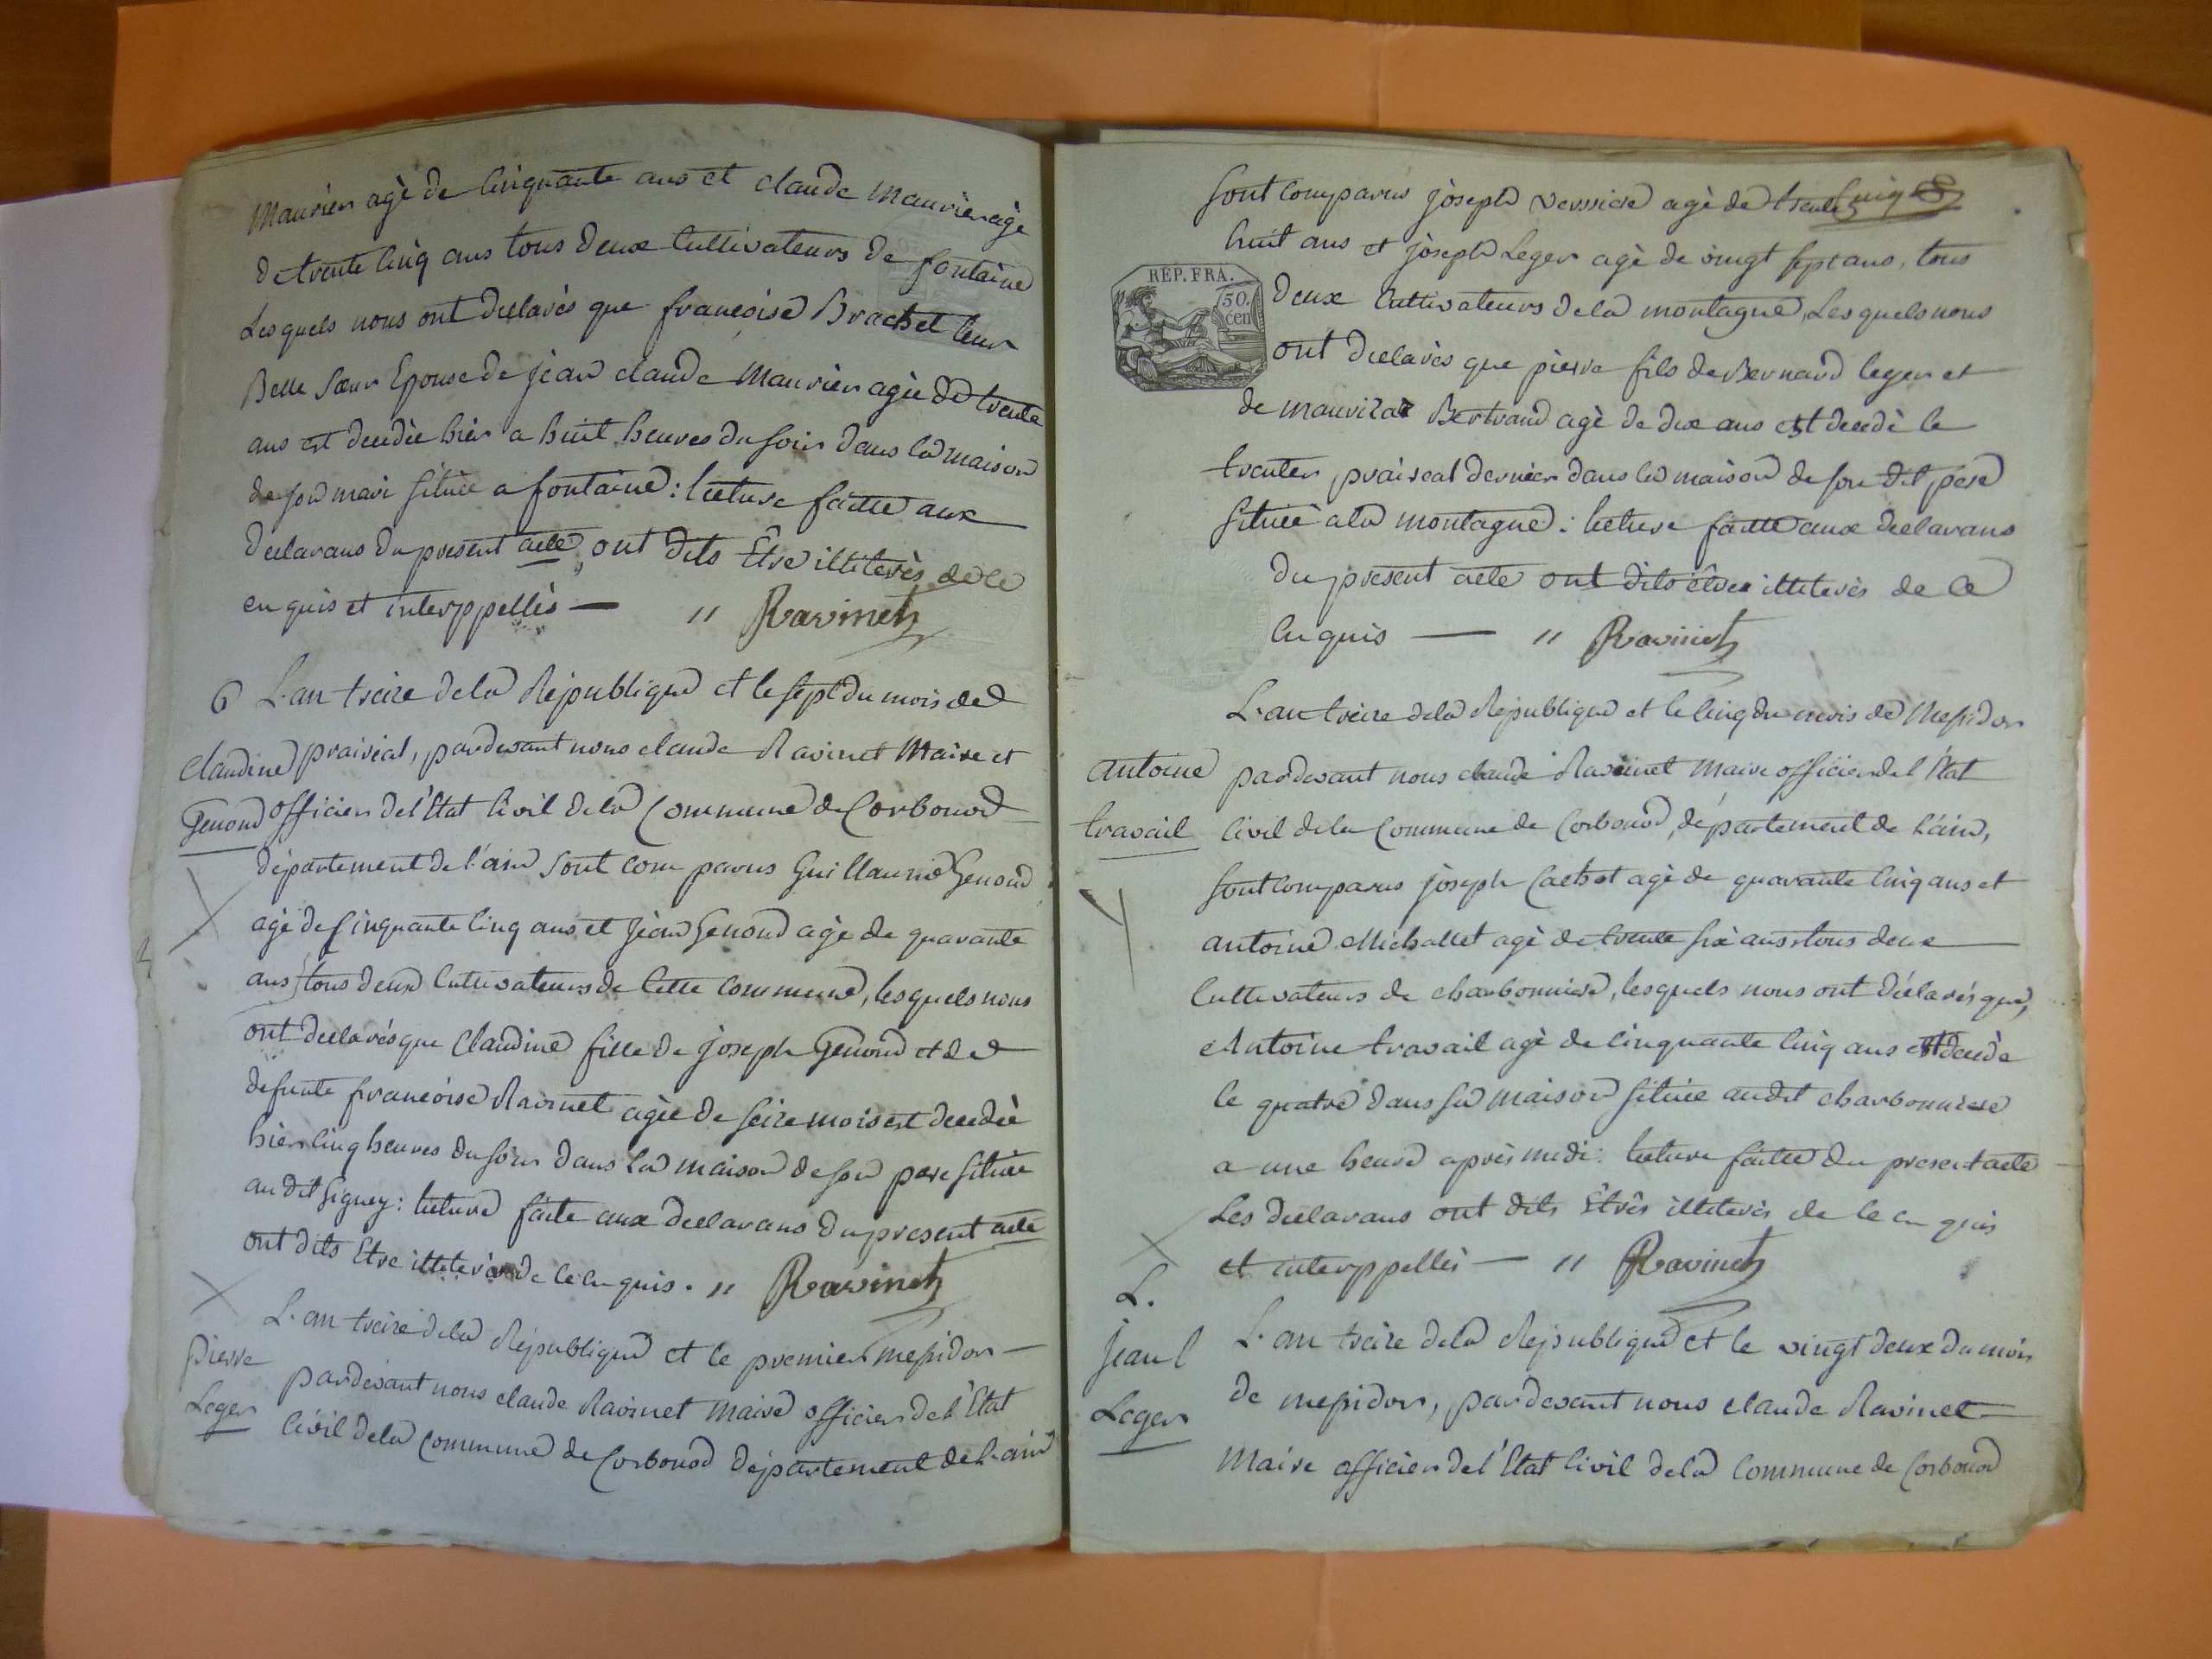 Maurier agé de Cinquante ans et claude Maurier agé
de trente Cinq ans tous deux Cultivateurs de fontaine
Lesquels nous ont declarés que francoise Brachet leur
Belle sœur Epouse de jean claude Maurier agée de trente
ans est decedée hier a huit heures du soir dans la maison
de son mari située a fontaine : lecture faitte aux
declarans du present acte, ont dits Etre illiterés de ce
enquis et interppellés — " Ravinet
6 L'an treize de la Republique et le sept du mois de
Claudine
Genoud
prairial, pardevant nous claude Ravinet Maire et
officier de l'Etat Civil de la Commune de Corbonod
département de l'ain sont comparus Guillaume Genoud
agé de Cinquante Cinq ans et jean Genoud agé de quarante
ans tous deux Cultivateurs de Cette Commune, lesquels nous
ont declarés que Claudine fille de joseph Genoud et de
defunte francoise Ravinet agée de seize mois est decedée
hier Cinq heures du soir dans la maison de son pere située
audit Signey : lecture faite aux declarans du present acte
ont dits Etre illiterés de ce enquis. " Ravinet
Pierre
Leger
L'an treize de la Republique et le premier messidor
pardevant nous claude Ravinet Maire officier de l'Etat
Civil de la Commune de Corbonod département de l'ain
Cinq
sont comparus joseph agé de trente
huit ans et joseph Leger agé de vingt sept ans, tous
REP. FRA.
50.
cen
deux Cultivateurs de la montagne, Lesquels nous
ont declarés que pierre fils de Bernard leger et
de Bertrand agé de dix ans est decedé le
trente, prairial dernier dans la maison de son dit pere
située a la montagne : lecture faitte aux declarans
du present acte ont dits être illiterés de ce
Enquis — " Ravinet
L'an treize de la Republique et le Cinq du mois de Messidor
Antoine
travail
pardevant nous claude Ravinet Maire officier de l'Etat
Civil de la Commune de Corbonod, département de l'ain,
sont comparus joseph Cachet agé de quarante Cinq ans et
antoine Michallet agé de trente six ans tous deux
Cultivateurs de charbonniere, lesquels nous ont déclarés que,
Antoine travail agé de Cinquante Cinq ans est decedé
le quatre dans sa maison située audit charbonniere
a une heure après midi : lecture faitte du present acte
Les declarans ont dits Etrés illiterés de ce enquis
et interppellés — " Ravinet
L.
jean l
Leger
L'an treize de la Republique et le vingt deux du mois
de messidor, pardevant nous claude Ravinet
Maire officier de l'Etat Civil de la Commune de Corbonod